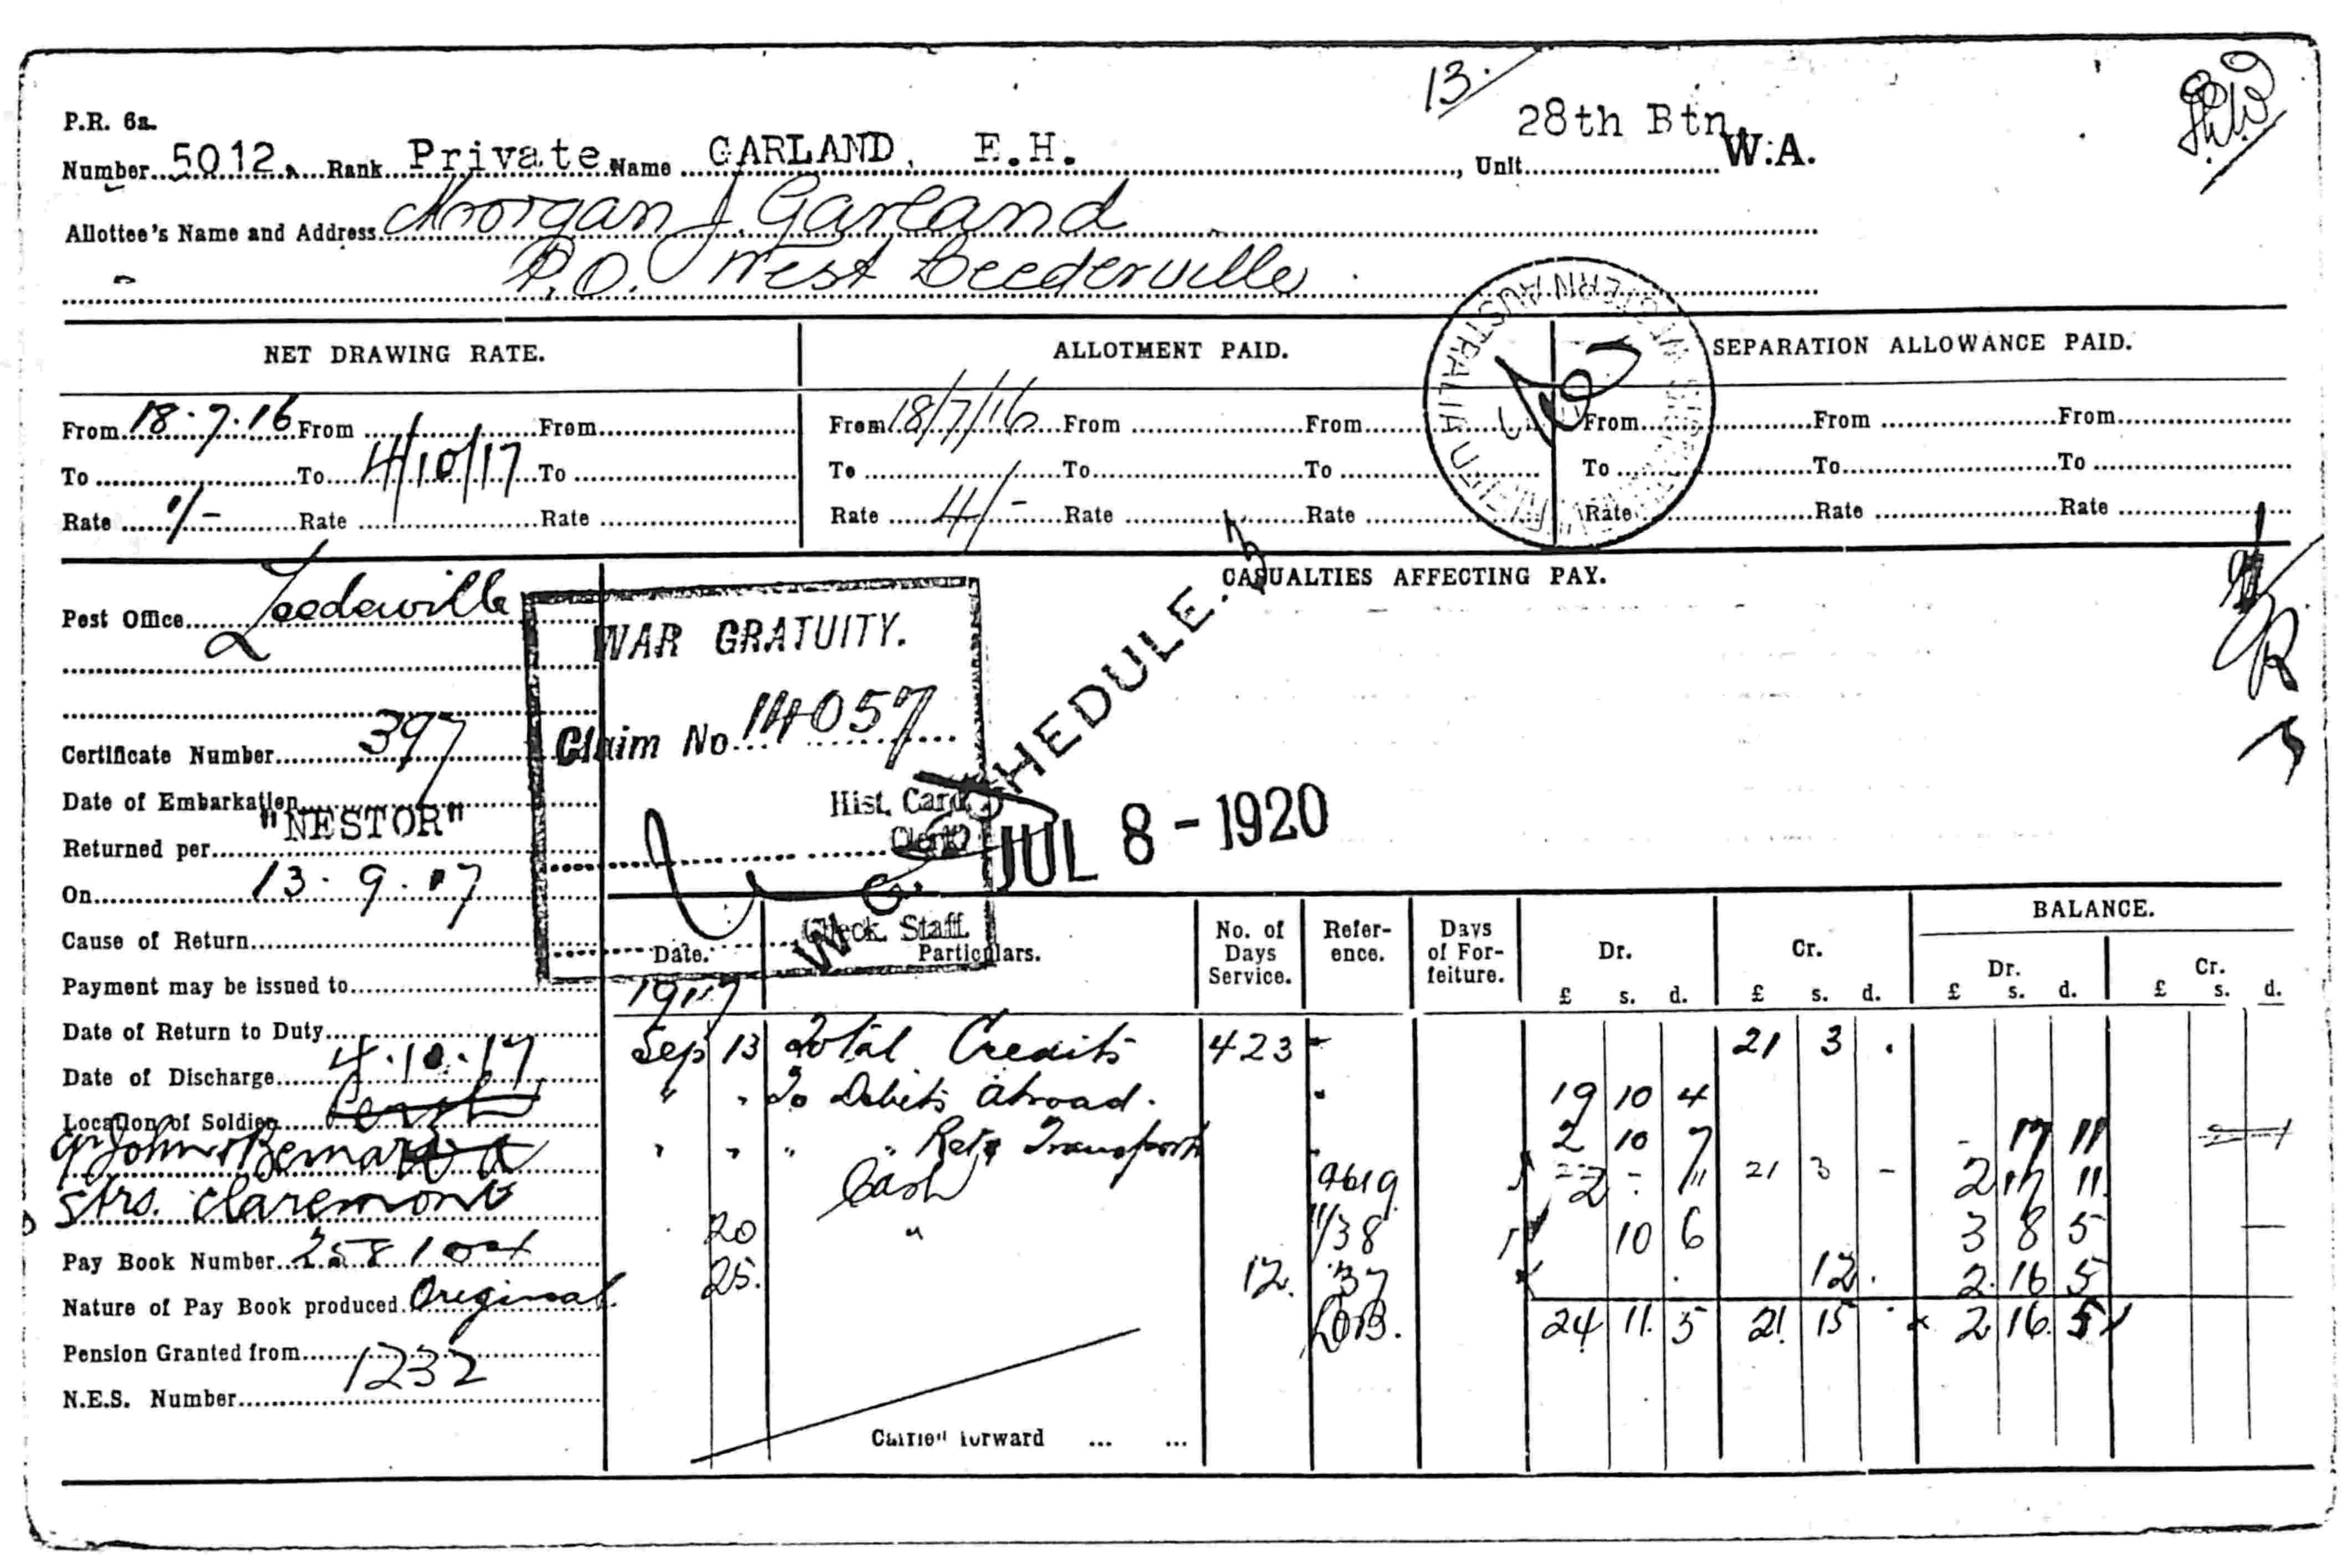 13.
P.R. 6a.
28th Btn.
Number 5012. Rank Private Name GARLAND, E.H. , Unit W.A.
Allottee's Name and Address Morgan J Garland
P.O. West Leederville
NET DRAWING RATE. ALLOTMENT PAID. SEPARATION ALLOWANCE PAID.
WESTERN AUSTRALIA
From 18.7.16 From From From 18/7/16 From From From From From
To To 4/10/17 To To To To To To To
Rate 1/- Rate Rate Rate 4/- Rate Rate Rate Rate Rate
CASUALTIES AFFECTING PAY.
Post Office Leederville
WAR GRATUITY.
Claim No 14057
Hist. Card
Clerk
Check. Staff.
W.G. SCHEDULE. 3
JUL 8 - 1920
Certificate Number 397
Date of Embarkation
Returned per "NESTOR"
On 13.9.17
Cause of Return
Payment may be issued to
Date of Return to Duty
Date of Discharge 4.10.17
Location of Soldier Perth
Johns Bernard
Strs. Claremont
Pay Book Number
Nature of Pay Book produced Original
Pension Granted from
N.E.S. Number 1232
Date. Particulars. No. of Days Service. Reference. Days of Forfeiture. Dr. Cr. BALANCE.
Dr. Cr.
£ s. d. £ s. d. £ s. d. £ s. d.
1917
Sep 13 Total Credits 423 - 21 3 .
" " To Debits abroad. " 19 10 4
" " " " Retg Transport " 2 10 7 - 17 11
Cash 9619 2 - " 21 3 - 2 17 11
20 " 1138 10 6 3 8 5 -
25. 12. 37 12. 2. 16 5
24 11. 5 21. 15 2. 16. 5
Carried forward ... ...